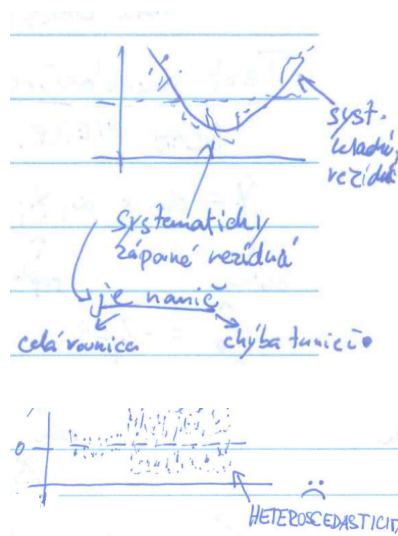 syst.
kladné
reziduá
systematicky
záporné reziduá
je nanič
celá rovnica
chýba tu niečo
0
HETEROSCEDASTICIT